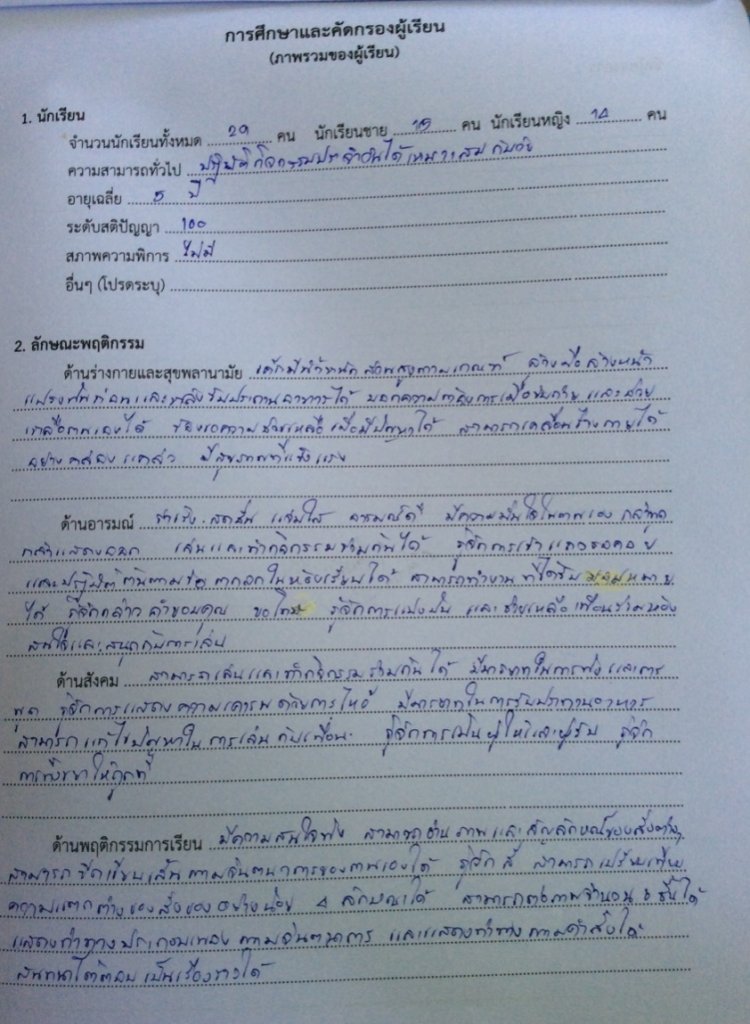 การศึกษาและคัดกรองผู้เรียน
(ภาพรวมของผู้เรียน)
1. นักเรียน
จำนวนนักเรียนทั้งหมด 29 คน นักเรียนชาย 15 คน นักเรียนหญิง 14 คน
ความสามารถทั่วไป ปฏิบัติกิจกรรมประจำวันได้เหมาะสมกับวัย
อายุเฉลี่ย 5 ปี
ระดับสติปัญญา 100
สภาพความพิการ ไม่มี
อื่นๆ (โปรดระบุ)
2. ลักษณะพฤติกรรม
ด้านร่างกายและสุขพลานามัย เด็กมีน้ำหนักส่วนสูงตามเกณฑ์ ล้างมือล้างหน้า
แปรงฟันก่อนและหลังรับประทานอาหารได้ บอกความต้องการเมื่อขับถ่าย และช่วย
เหลือตนเองได้ ร้องขอความช่วยเหลือเมื่อมีปัญหาได้ สามารถเคลื่อนร่างกายได้
อย่างคล่องแคล่ว มีสุขภาพที่แข็งแรง
ด้านอารมณ์ ร่าเริง สดชื่น แจ่มใส อารมณ์ดี มีความมั่นใจในตนเอง กล้าพูด
กล้าแสดงออก เล่นและทำกิจกรรมร่วมกันได้ รู้จักการเข้าแถวรอคอย
และปฏิบัติตนตามข้อตกลงในห้องเรียนได้ สามารถทำงานที่ได้รับมอบหมาย
ได้ รู้จักกล่าวคำขอบคุณ ขอโทษ รู้จักการแบ่งปัน และช่วยเหลือเพื่อนร่วมห้อง
สนใจและสนุกกับการเล่น
ด้านสังคม สามารถเล่นและทำกิจกรรมร่วมกันได้ มีมารยาทในการฟังและการ
พูด รู้จักการแสดงความเคารพด้วยการไหว้ มีมารยาทในการรับประทานอาหาร
สามารถแก้ไขปัญหาในการเล่นกับเพื่อน รู้จักการเป็นผู้ให้และผู้รับ รู้จัก
การทิ้งขยะให้ถูกที่
ด้านพฤติกรรมการเรียน มีความสนใจฟัง สามารถอ่านภาพและสัญลักษณ์ของสิ่งต่างๆ
สามารถขีดเขียนเส้นตามจินตนาการของตนเองได้ รู้จักสี สามารถเปรียบเทียบ
ความแตกต่างของสิ่งของอย่างน้อย 4 ลักษณะได้ สามารถต่อภาพจำนวน 6 ชิ้นได้
แสดงท่าทางประกอบเพลงตามจินตนาการ และแสดงท่าทางตามคำสั่งได้
สนทนาโต้ตอบเป็นเรื่องราวได้